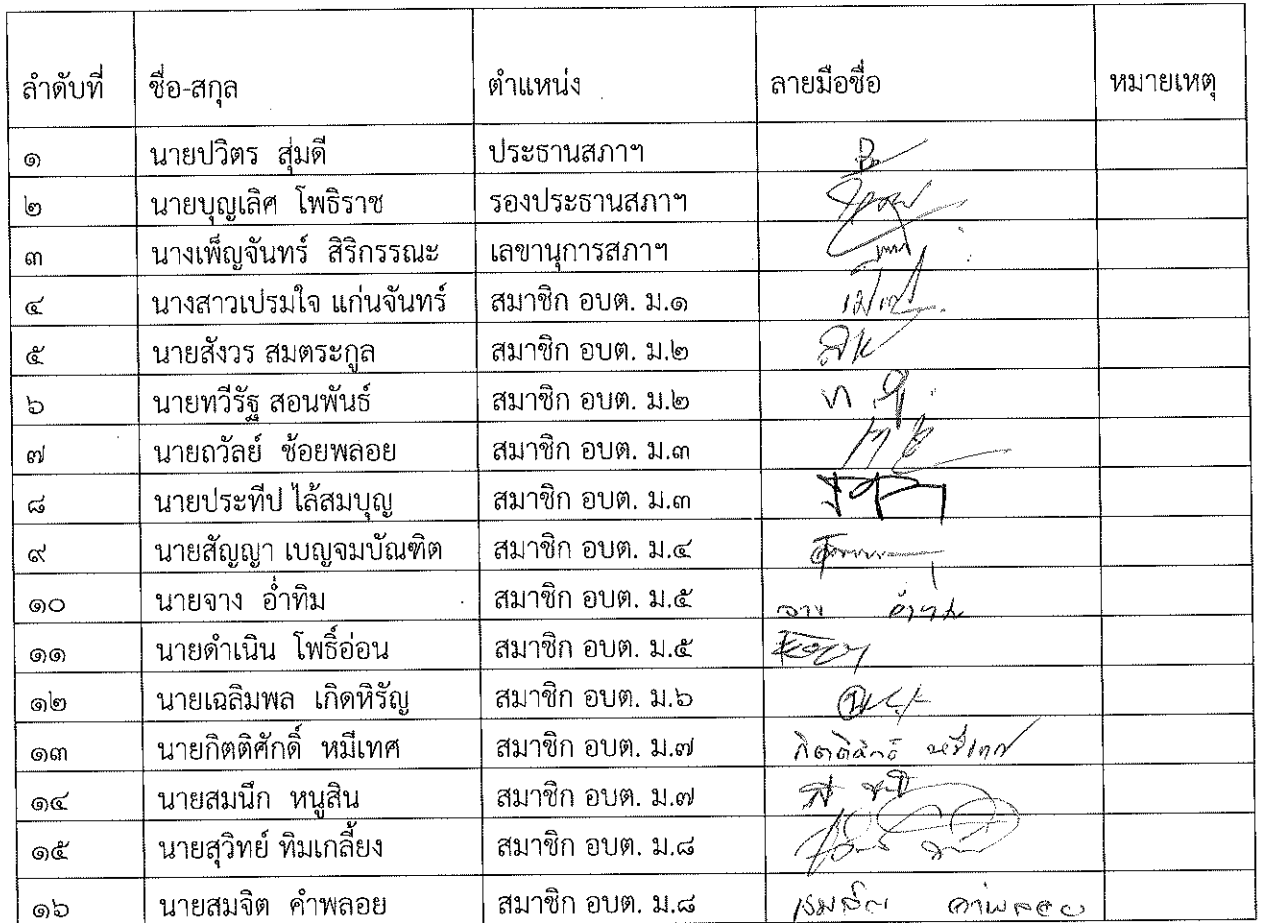 ลำดับที่ ชื่อ-สกุล ตำแหน่ง ลายมือชื่อ หมายเหตุ
๑ นายปวิตร สุ่มดี ประธานสภาฯ
๒ นายบุญเลิศ โพธิราช รองประธานสภาฯ
๓ นางเพ็ญจันทร์ สิริกรรณะ เลขานุการสภาฯ
๔ นางสาวเปรมใจ แก่นจันทร์ สมาชิก อบต. ม.๑
๕ นายสังวร สมตระกูล สมาชิก อบต. ม.๒
๖ นายทวีรัฐ สอนพันธ์ สมาชิก อบต. ม.๒
๗ นายถวัลย์ ช้อยพลอย สมาชิก อบต. ม.๓
๘ นายประทีป ไล้สมบุญ สมาชิก อบต. ม.๓
๙ นายสัญญา เบญจมบัณฑิต สมาชิก อบต. ม.๔
๑๐ นายจาง อ่ำทิม สมาชิก อบต. ม.๕ จาง อ่ำทิม
๑๑ นายดำเนิน โพธิ์อ่อน สมาชิก อบต. ม.๕
๑๒ นายเฉลิมพล เกิดหิรัญ สมาชิก อบต. ม.๖
๑๓ นายกิตติศักดิ์ หมีเทศ สมาชิก อบต. ม.๗ กิตติศักดิ์ หมีเทศ
๑๔ นายสมนึก หนูสิน สมาชิก อบต. ม.๗
๑๕ นายสุวิทย์ ทิมเกลี้ยง สมาชิก อบต. ม.๘
๑๖ นายสมจิต คำพลอย สมาชิก อบต. ม.๘ คำพลอย